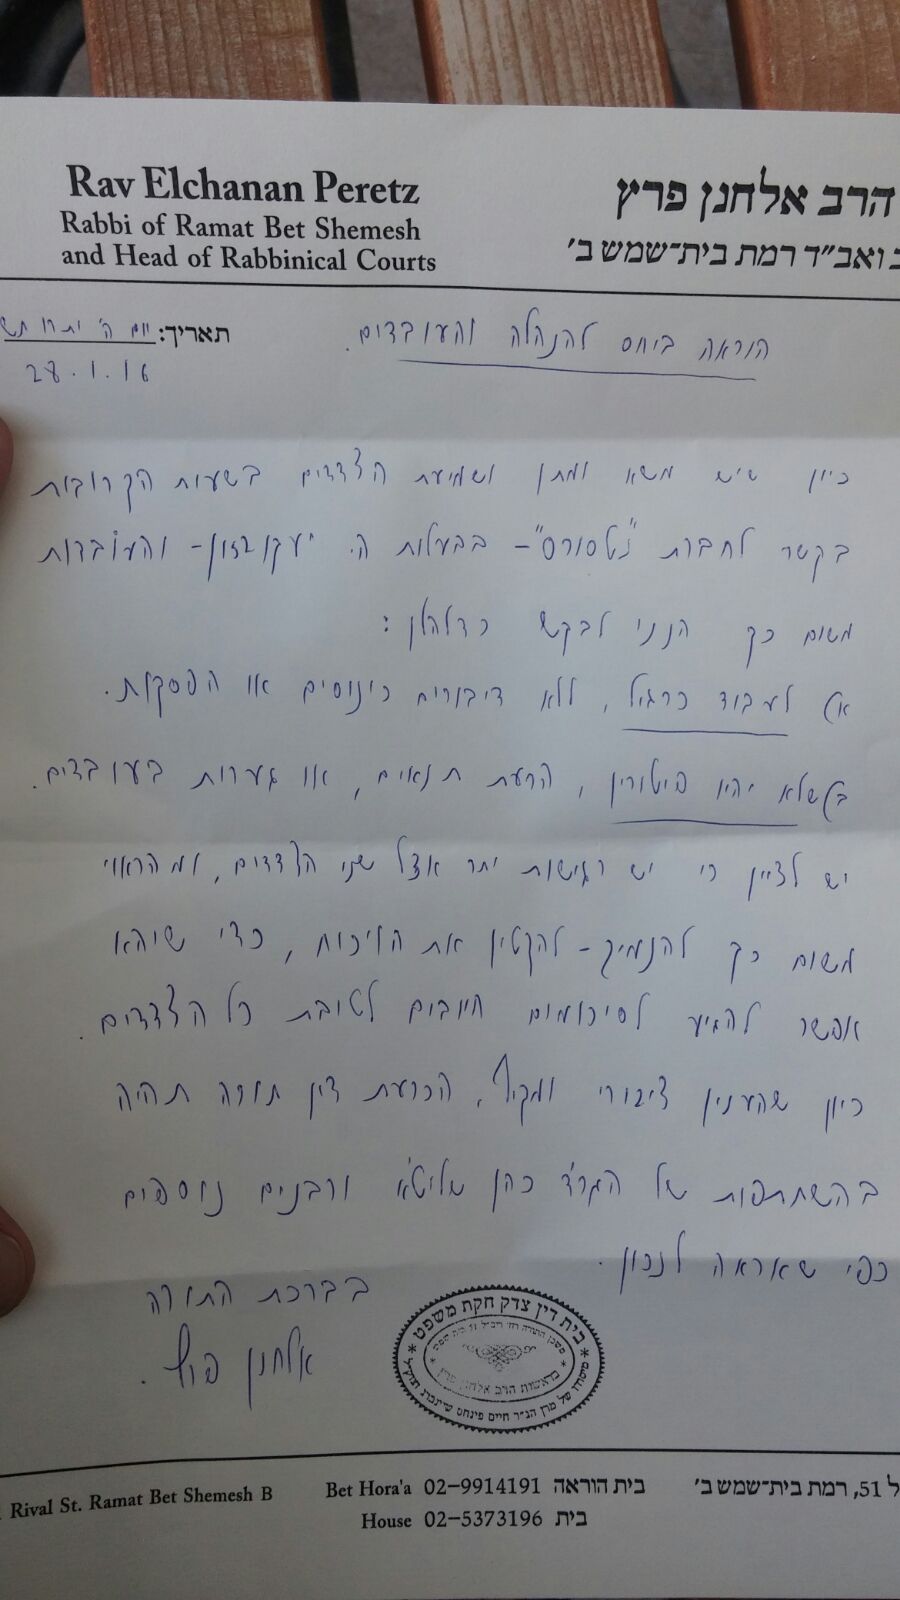 Rav Elchanan Peretz
Rabbi of Ramat Bet Shemesh
and Head of Rabbinical Courts
הרב אלחנן פרץ
ואב״ד רמת בית־שמש ב׳
תאריך: יום ה' יתרו תש
28.1.16
הוראה ביחס להנהלה והעובדים.
כיון שיש משא ומתן ושמיעת הצדדים בשעות הקרובות
בקשר לחברת "נטסורס" – בבעלות ה. – והעובדות
משום כך הנני לבקש כדלהלן:
א) לעבוד כרגיל, ללא דיבורים כינוסים או הפסקות.
ב) שלא יהיו פיטורין, הרעת תנאים, או גערות בעובדים.
יש לציין כי יש רגישות יתר אצל שני הצדדים, ומהראוי
משום כך להנמיך – להקטין את הויכוח, כדי שיהא
אפשר להגיע לסיכומים חיובים לטובת כל הצדדים.
כיון שהענין ציבורי ומקיף, הכרעת דין תורה תהיה
בהשתתפות של הגר"ד כהן שליט"א ורבנים נוספים
כפי שאראה לנכון.
בברכת התורה
אלחנן פרץ.
בית דין צדק חקת משפט
בראשות הרב אלחנן פרץ
Rival St. Ramat Bet Shemesh B
Bet Hora'a 02-9914191 בית הוראה
House 02-5373196 בית
ל 51, רמת בית־שמש ב׳